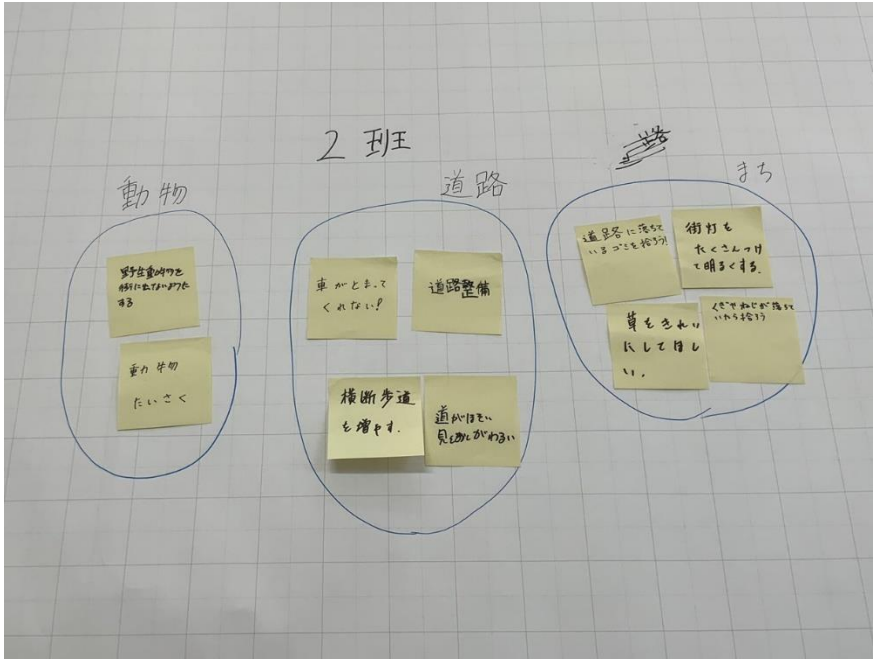 2 班
動物
野生動物を
街に出てないようた
する
動物
たいさく
道路
車がとまって
くれない!
道路整備
横断歩道
を増やす.
道がほそい
見通しがわるい
まち
道路に落ちて
いるゴミを拾うう!
街灯を
たくさんつけ
て明るくする.
草をきれい
にしてほし
い.
くぎやねじが落ちて
いたら拾う